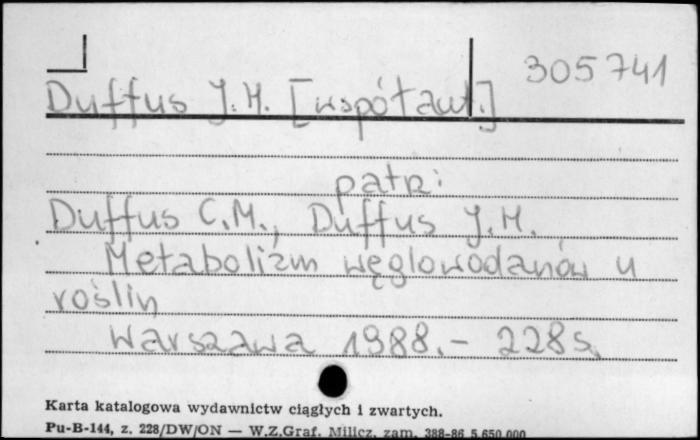 305741
Duffus J.H. [współaut.]
patrz:
Duffus C.M., Duffus J.H.
Metabolizm węglowodanów u
roślin
Warszawa 1988. - 228 s.
Karta katalogowa wydawnictw ciągłych i zwartych.
Pu-B-144, z. 228/DW/ON — W.Z.Graf. Milicz, zam. 388-86 5.650.000